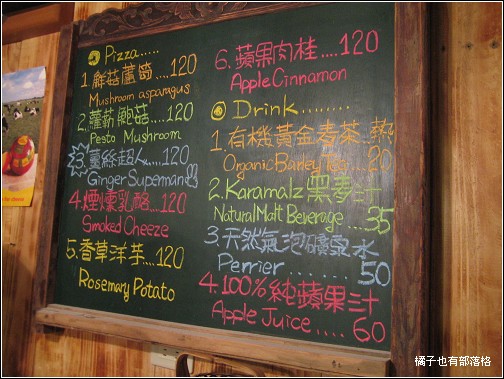 Pizza.....
1.鮮菇蘆筍...120
Mushroom asparagus
2.蘿勒鮑菇...120
Pesto Mushroom
3.薑絲超人...120
Ginger Superman
4.煙燻乳酪...120
Smoked Cheeze
5.香草洋芋...120
Rosemary Potato
6.蘋果肉桂....120
Apple Cinnamon
Drink........
1.有機黃金麥茶..熱
Organic Barley Tea....20
2.Karamalz 黑麥汁
Natural Malt Beverage ....35
3.天然氣泡礦泉水
Perrier.......50
4.100%純蘋果汁
Apple Juice.....60
橘子也有部落格